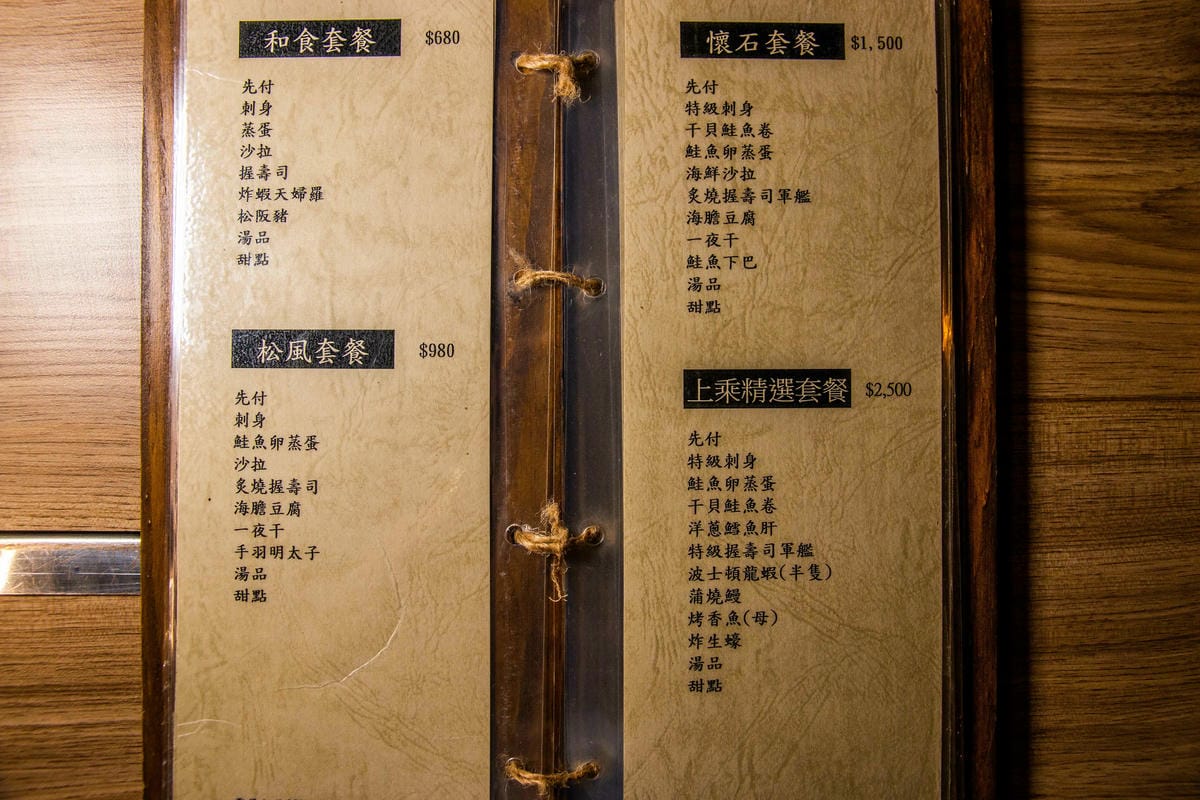 和食套餐 $680
先付
刺身
蒸蛋
沙拉
握壽司
炸蝦天婦羅
松阪豬
湯品
甜點
松風套餐 $980
先付
刺身
鮭魚卵蒸蛋
沙拉
炙燒握壽司
海膽豆腐
一夜干
手羽明太子
湯品
甜點
懷石套餐 $1,500
先付
特級刺身
干貝鮭魚卷
鮭魚卵蒸蛋
海鮮沙拉
炙燒握壽司軍艦
海膽豆腐
一夜干
鮭魚下巴
湯品
甜點
上乘精選套餐 $2,500
先付
特級刺身
鮭魚卵蒸蛋
干貝鮭魚卷
洋蔥鱈魚肝
特級握壽司軍艦
波士頓龍蝦(半隻)
蒲燒鰻
烤香魚(母)
炸生蠔
湯品
甜點